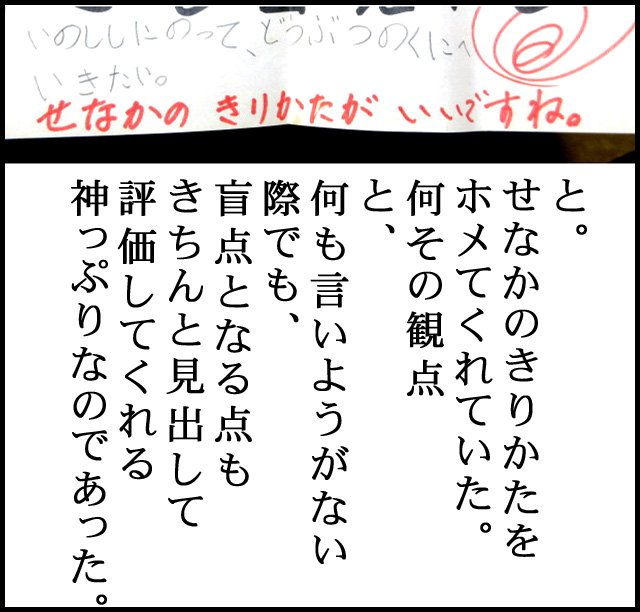 いのししにのって、どうぶつのくにへ
いきたい。
せなかの きりかたが いいですね。
と。
せなかのきりかたを
ホメてくれていた。
何その観点
と、
何も言いようがない
際でも、
盲点となる点も
きちんと見出して
評価してくれる
神っぷりなのであった。